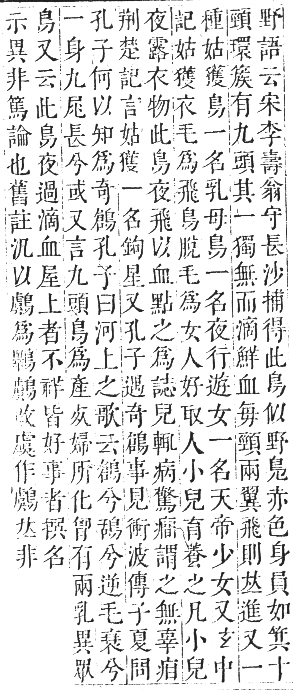 野語云宋李壽翁守長沙捕得此鳥似野鳧赤色身員如箕十
頸環簇有九頭其一獨無而滴鮮血每頸兩翼飛則並進又一
種姑獲鳥一名乳母鳥一名夜行遊女一名天帝少女又玄中
記姑獲衣毛為飛鳥脫毛為女人好取人小兒育養之凡小兒
夜露衣物此鳥夜飛以血點之為誌兒輒病驚癎謂之無辜疳
荆楚記言姑獲一名鉤星又孔子遇奇鶬事見衝波傳子夏問
孔子何以知為奇鶬孔子曰河上之歌云鶬兮鴰兮逆毛衰兮
一身九尾長兮或又言九頭鳥為產歿婦所化胷有兩乳異眾
鳥又云此鳥夜過滴血屋上者不祥皆好事者撰名
示異非篤論也舊註汎以鸕為鸓鸕改虞作鸕𠀤非